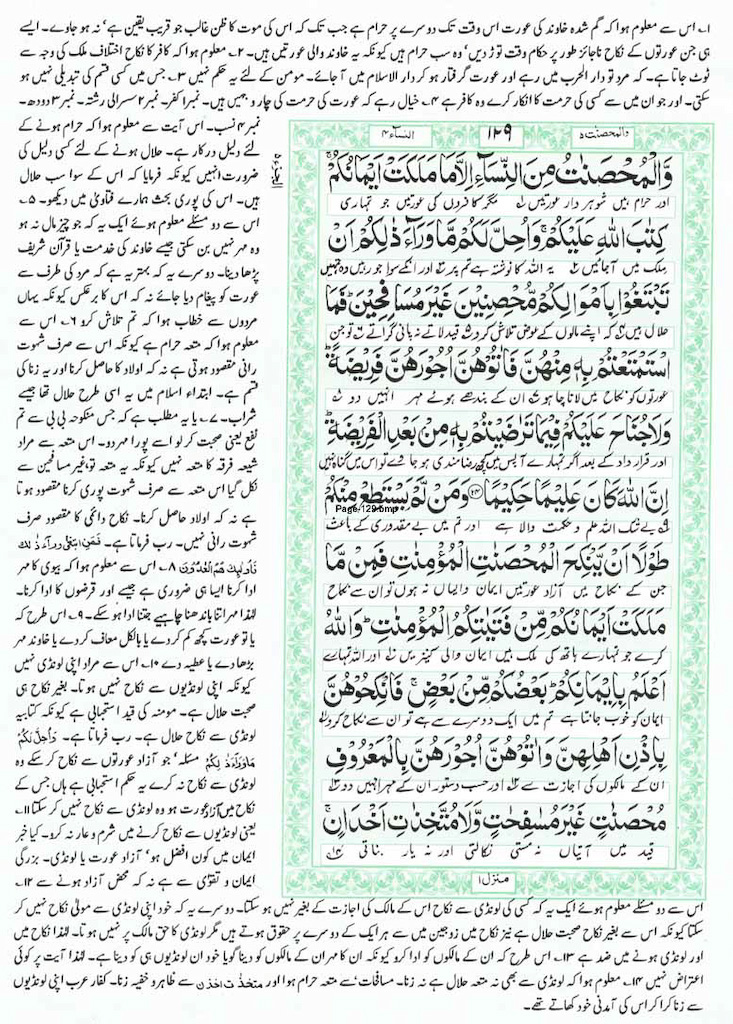 ۱۔ اس سے معلوم ہوا کہ گم شدہ خاوند کی عورت اس وقت تک دوسرے پر حرام ہے جب تک کہ اس کی موت کا ظن غالب جو قریب یقین ہے' نہ ہو جاوے۔ ایسے
ہی جن عورتوں کے نکاح ناجائز طور پر حکام وقت توڑ دیں' وہ سب حرام ہیں کیونکہ یہ خاوند والی عورتیں ہیں۔ ۲۔ معلوم ہوا کہ کافر کا نکاح اختلاف ملک کی وجہ سے
ٹوٹ جاتا ہے۔ کہ مرد تو دار الحرب میں رہے اور عورت گرفتار ہو کر دار الاسلام میں آ جائے۔ مومن کے لئے یہ حکم نہیں ۳۔ جس میں کسی قسم کی تبدیلی نہیں ہو
سکتی۔ اور جو ان میں سے کسی کی حرمت کا انکار کرے وہ کافر ہے ۴۔ خیال رہے کہ عورت کی حرمت کی چار وجہیں ہیں۔ نمبر۱ کفر۔ نمبر۲ سسرالی رشتہ۔ نمبر۳ دودھ۔
والمحصنت ۵
۱۲۹
النساء ۴
وَّالْمُحْصَنٰتُ مِنَ النِّسَآءِ اِلَّا مَا مَلَكَتْ اَيْمَانُكُمْ ۚ
اور حرام ہیں شوہر دار عورتیں ۱ مگر کافروں کی عورتیں جو تمہاری
كِتٰبَ اللّٰهِ عَلَيْكُمْ ۚ وَاُحِلَّ لَكُمْ مَّا وَرَآءَ ذٰلِكُمْ اَنْ
ملک میں آ جائیں ۲ یہ اللہ کا نوشتہ ہے تم پر ۳ اور ان کے سوا جو رہیں وہ تمہیں
تَبْتَغُوْا بِاَمْوَالِكُمْ مُّحْصِنِيْنَ غَيْرَ مُسَافِحِيْنَ ؕ فَمَا
حلال ہیں ۴ کہ اپنے مالوں کے عوض تلاش کرو ۵ قید لاتے نہ پانی گراتے ۶ تو جن
اسْتَمْتَعْتُمْ بِهٖ مِنْهُنَّ فَاٰتُوْهُنَّ اُجُوْرَهُنَّ فَرِيْضَةً ؕ
عورتوں کو نکاح میں لانا چاہو ۷ ان کے بندھے ہوئے مہر انہیں دو ۸
وَلَا جُنَاحَ عَلَيْكُمْ فِيْمَا تَرٰضَيْتُمْ بِهٖ مِنْۢ بَعْدِ الْفَرِيْضَةِ ؕ
اور قرار داد کے بعد اگر تمہارے آپس میں کچھ رضامندی ہو جائے تو اس میں گناہ نہیں
اِنَّ اللّٰهَ كَانَ عَلِيْمًا حَكِيْمًا ﴿۲۴﴾ وَمَنْ لَّمْ يَسْتَطِعْ مِنْكُمْ
Page-129.bmp
۹ بے شک اللہ علم و حکمت والا ہے اور تم میں بے مقدوری کے باعث
طَوْلًا اَنْ يَّنْكِحَ الْمُحْصَنٰتِ الْمُؤْمِنٰتِ فَمِنْ مَّا
جن کے نکاح میں آزاد عورتیں ایمان والیاں نہ ہوں تو ان سے نکاح
مَلَكَتْ اَيْمَانُكُمْ مِّنْ فَتَيٰتِكُمُ الْمُؤْمِنٰتِ ؕ وَاللّٰهُ
کرے جو تمہارے ہاتھ کی ملک ہیں ایمان والی کنیزیں ۱۰ اور اللہ تمہارے
اَعْلَمُ بِاِيْمَانِكُمْ ؕ بَعْضُكُمْ مِّنْۢ بَعْضٍ ۚ فَانْكِحُوْهُنَّ
ایمان کو خوب جانتا ہے تم میں ایک دوسرے سے ہے تو ان سے نکاح کرو ۱۱
بِاِذْنِ اَهْلِهِنَّ وَاٰتُوْهُنَّ اُجُوْرَهُنَّ بِالْمَعْرُوْفِ
ان کے مالکوں کی اجازت سے ۱۲ اور حسب دستور ان کے مہر انہیں دو ۱۳
مُحْصَنٰتٍ غَيْرَ مُسٰفِحٰتٍ وَّلَا مُتَّخِذٰتِ اَخْدَانٍ ۚ
قید میں آتیاں نہ مستی نکالتی اور نہ یار بناتی ۱۴
منزل ۱
نمبر۴ نسب۔ اس آیت سے معلوم ہوا کہ حرام ہونے کے
لئے دلیل درکار ہے۔ حلال ہونے کے لئے کسی دلیل کی
ضرورت نہیں کیونکہ فرمایا کہ اس کے سوا سب حلال
ہیں۔ اس کی پوری بحث ہمارے فتاویٰ میں دیکھو۔ ۵۔
اس سے دو مسئلے معلوم ہوئے ایک یہ کہ جو چیز مال نہ ہو
وہ مہر نہیں بن سکتی جیسے خاوند کی خدمت یا قرآن شریف
پڑھا دینا۔ دوسرے یہ کہ بہتر یہ ہے کہ مرد کی طرف سے
عورت کو پیغام دیا جائے نہ کہ اس کا برعکس کیونکہ یہاں
مردوں سے خطاب ہوا کہ تم تلاش کرو ۶۔ اس سے
معلوم ہوا کہ متعہ حرام ہے کیونکہ اس سے صرف شہوت
رانی مقصود ہوتی ہے نہ کہ اولاد کا حاصل کرنا اور یہ زنا کی
قسم ہے۔ ابتداء اسلام میں یہ اسی طرح حلال تھا جیسے
شراب۔ ۷۔ یا یہ مطلب ہے کہ جس منکوحہ بی بی سے تم
نفع یعنی صحبت کر لو اسے پورا مہر دو۔ اس متعہ سے مراد
شیعہ فرقہ کا متعہ نہیں کیونکہ یہ متعہ تو غیر مسافحین سے
نکل گیا اس متعہ سے صرف شہوت پوری کرنا مقصود ہوتا
ہے نہ کہ اولاد حاصل کرنا۔ نکاح دائمی کا مقصود صرف
شہوت رانی نہیں۔ رب فرماتا ہے۔ فَمَنِ ابْتَغٰى وَرَآءَ ذٰلِكَ
فَاُولٰٓئِكَ هُمُ الْعٰدُوْنَ ۸۔ اس سے معلوم ہوا کہ بیوی کا مہر
ادا کرنا ایسا ہی ضروری ہے جیسے اور قرضوں کا ادا کرنا۔
لہٰذا مہر اتنا باندھنا چاہیے جتنا ادا ہو سکے۔ ۹۔ اس طرح کہ
یا تو عورت کچھ کم کر دے یا بالکل معاف کر دے یا خاوند مہر
بڑھا دے یا عطیہ دے ۱۰۔ اس سے مراد اپنی لونڈی نہیں
کیونکہ اپنی لونڈیوں سے نکاح نہیں ہوتا۔ بغیر نکاح ہی
صحبت حلال ہے۔ مومنہ کی قید استحبابی ہے کیونکہ کتابیہ
لونڈی سے نکاح حلال ہے۔ رب فرماتا ہے۔ وَاُحِلَّ لَكُمْ
مَّا وَرَآءَ ذٰلِكُمْ مسئلہ' جو آزاد عورتوں سے نکاح کر سکے وہ
لونڈی سے نکاح نہ کرے یہ حکم استحبابی ہے ہاں جس کے
نکاح میں آزاد عورت ہو وہ لونڈی سے نکاح نہیں کر سکتا ۱۱۔
یعنی لونڈیوں سے نکاح کرنے میں شرم و عار نہ کرو۔ کیا خبر
ایمان میں کون افضل ہو' آزاد عورت یا لونڈی۔ بزرگی
ایمان و تقویٰ سے ہے نہ کہ محض آزاد ہونے سے ۱۲۔
اس سے دو مسئلے معلوم ہوئے ایک یہ کہ کسی کی لونڈی سے نکاح اس کے مالک کی اجازت کے بغیر نہیں ہو سکتا۔ دوسرے یہ کہ خود اپنی لونڈی سے مولیٰ نکاح نہیں کر
سکتا کیونکہ اس سے بغیر نکاح صحبت حلال ہے نیز نکاح میں زوجین میں سے ہر ایک کے دوسرے پر حقوق ہوتے ہیں مگر لونڈی کا حق مالک پر نہیں ہوتا۔ لہٰذا نکاح میں
اور لونڈی ہونے میں ضد ہے ۱۳۔ اس طرح کہ ان کے مالکوں کو ادا کرو کیونکہ ان کا مہر ان کے مالکوں کو دینا گویا خود ان لونڈیوں ہی کو دینا ہے۔ لہٰذا آیت پر کوئی
اعتراض نہیں ۱۴۔ معلوم ہوا کہ لونڈی سے بھی نہ متعہ حلال ہے نہ زنا۔ مسافحات' سے متعہ حرام ہوا اور متخذت اخدن سے ظاہر و خفیہ زنا۔ کفار عرب اپنی لونڈیوں
سے زنا کرا کر اس کی آمدنی خود کھاتے تھے۔